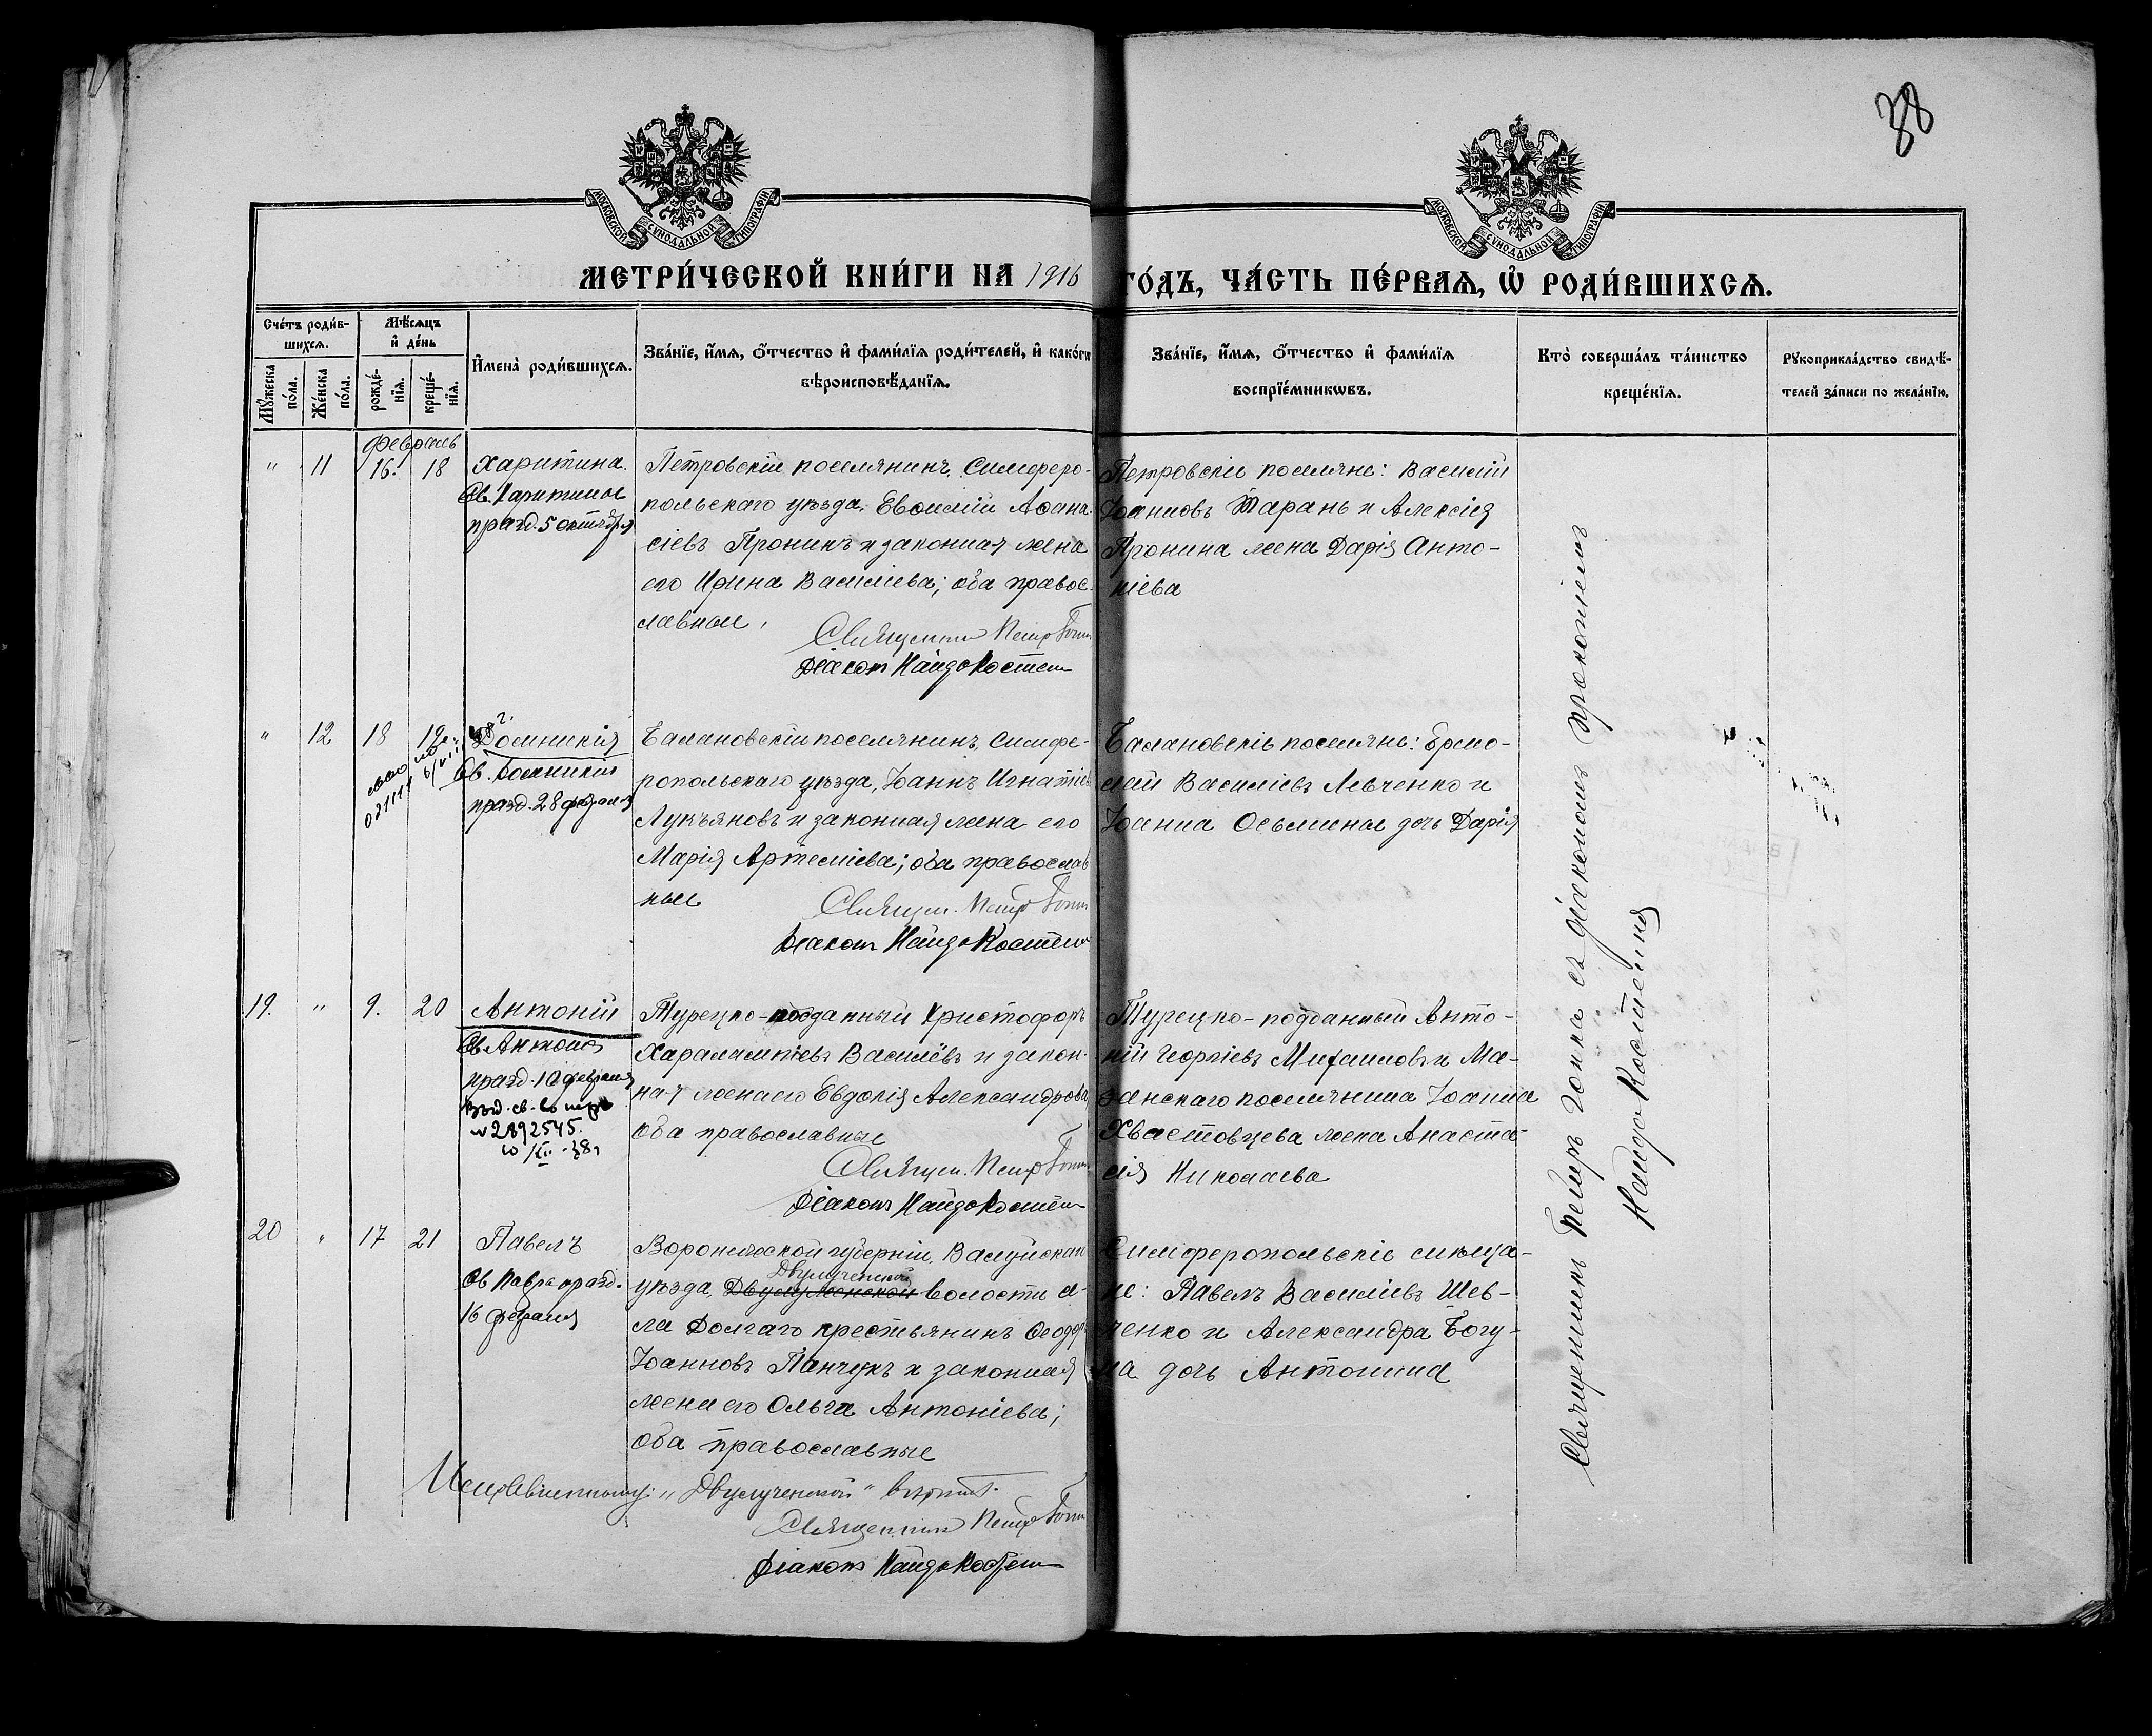 38
МОСКОВСКОЙ СѴНОДАЛЬНОЙ ТИПОГРАФІИ
МОСКОВСКОЙ СѴНОДАЛЬНОЙ ТИПОГРАФІИ
МЕТРИ́ЧЕСКОЙ КНИ́ГИ НА 1916 ГО́ДЪ, ЧА́СТЬ ПЕ́РВАѦ, Ѽ РОДИ́ВШИХСѦ.
Сче́тъ роди́в-
шихсѧ.
Мꙋ́жеска
по́ла.
Же́нска
по́ла.
Мѣ́сѧцъ
и҆ де́нь
рожде́-
нїѧ.
креще́-
нїѧ.
И҆мена̀ роди́вшихсѧ.
Зва́нїе, и҆́мѧ, ѻ҆́тчество и҆ фами́лїѧ роди́телей, и҆ како́гѡ
вѣроисповѣ́данїѧ.
Зва́нїе, и҆́мѧ, ѻ҆́тчество и҆ фами́лїѧ
воспрїе́мникѡвъ.
Кто̀ соверша́лъ та́инство
креще́нїѧ.
Рꙋкоприкла́дство свидѣ́-
телей за́писи по жела́нїю.
Февраль
" 11 16. 18 Харитина.
Св. Харитины
празд. 5 октября
Петровскій поселянинъ, Симферо-
польскаго уѣзда, Евѳимій Аѳана-
сіевъ Пронинъ и законная жена
его Ирина Василіева; оба правос-
лавные.
Священникъ Петръ
Діаконъ Найдо Костен
Петровскіе поселяне: Василій
Іоанновъ Тарань и Алексія
Пронина жена Дарія Анто-
ніева
" 12 18 19 Домникія
Св. Домникіи
празд. 28 февраля
Балановскій поселянинъ, Симфе-
ропольскаго уѣзда, Іоаннъ Игнатіев
Лукъяновъ и законная жена его
Марія Артеміева; оба православ
ные
Священ. Петръ
Діаконъ Найдо Костен
Балановскіе поселяне: Ермо-
лай Василіевъ Левченко и
Іоанна Осьмины дочь Дарія
19. " 9. 20 Антоній
Св. Антонія
празд. 10 февраля
№ 2892545.
Турецко-подданный Христофоръ
Харалампіевъ Василёвъ и закон-
ная жена его Евдокія Александрова
оба православные
Священ. Петръ
Діаконъ Найдо Костен
Турецко-подданный Анто-
ній Георгіевъ Михаиловъ и Ма-
занскаго поселянина Іоанна
Хвастовцева жена Анаста-
сія Николаева
20 " 17 21 Павелъ
Св Павла празд.
16 февраля
Воронежской губерніи, Валуйскаго
Двулученской
уѣзда, волости се-
ла Долгаго крестьянинъ Ѳеодоръ
Іоанновъ Панчукъ и законная
жена его Ольга Антоніева;
оба православные
Исправленному: „Двулученской" вѣрить.
Священникъ Петръ
Діаконъ Найдо Костен
Симферопольскіе мѣща-
не: Павелъ Василіевъ Шев-
ченко и Александра Богу-
на дочь Антонина
Священникъ Петръ Гонка съ діакономъ Прокопіемъ
Найдо Костенко